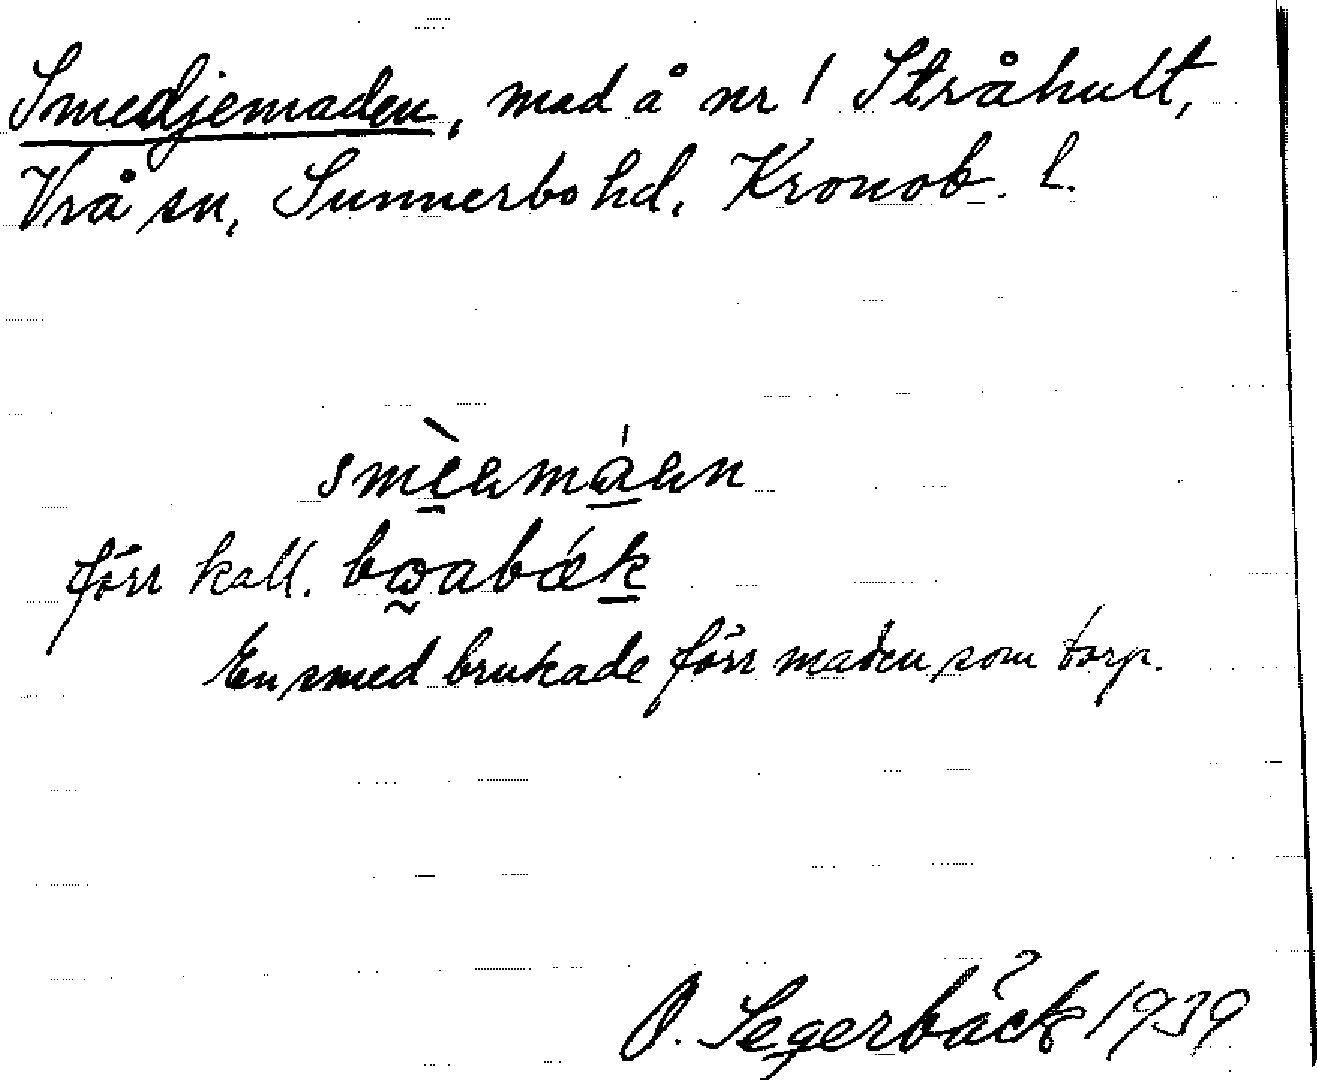 Smedjemaden, mad å nr 1 Stråhult,
Vrå sn, Sunnerbo hd, Kronob. l.
förr kall.
En smed brukade förr maden som torp.
O. Segerbäck 1939